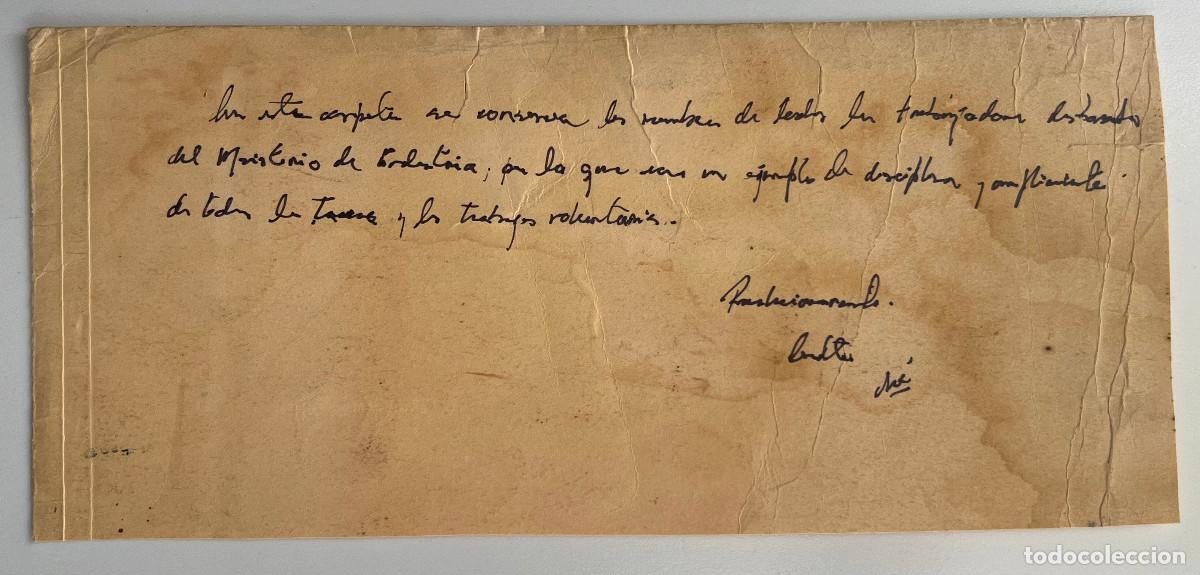 En esta carpeta se conserva los nombres de todos los trabajadores destacados
del Ministerio de Industria, por lo que son un ejemplo de disciplina y cumplimiento
de todas las tareas y los trabajos voluntarios.
Revolucionariamente.
Che
todocoleccion